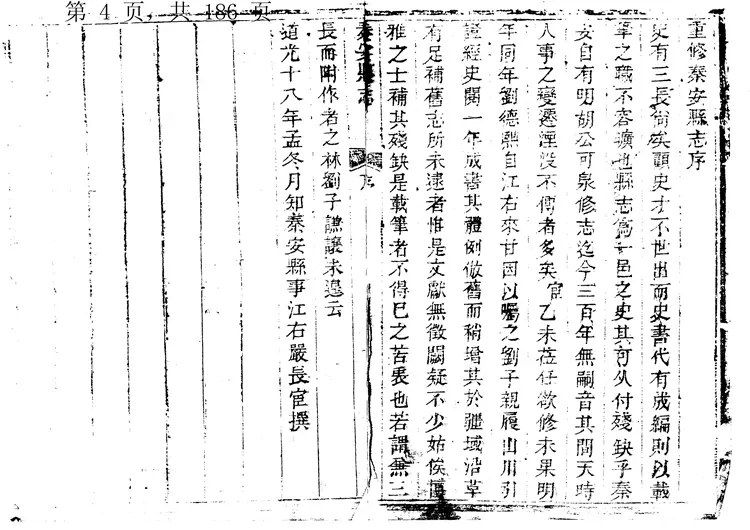 第 4 页，共 186 页
重修秦安縣志序
史有三長尚矣顧史才不世出而史書代有成編則以載
筆之職不容曠也縣志為一邑之史其可以付殘缺乎秦
安自有明胡公可泉修志迄今三百年無嗣音其間天時
人事之變遷湮没不傳者多矣宦乙未莅任欲修未果明
年同年劉德熙自江右來甘因以囑之劉子親履山川引
證經史閱一年成書其體例倣舊而稍增其於疆域沿革
有足補舊志所未逮者惟是文獻無徵闕疑不少姑俟博
雅之士補其殘缺是載筆者不得已之苦衷也若謂無三
秦安縣志
序
長而附作者之林劉子謙讓未遑云
道光十八年孟冬月知秦安縣事江右嚴長宦撰